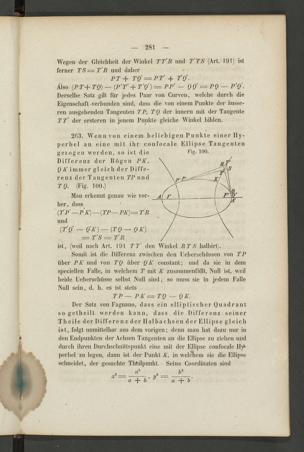 — 281 —
Wegen der Gleichheit der Winkel TT'R und T'TS (Art. 191) ist
ferner TS = T'R und daher
PT + TQ' = PT' + T'Q'.
Also (PT + TQ) — (P'T' + T'Q') = PP' — QQ' = PQ — P'Q'.
Derselbe Satz gilt für jedes Paar von Curven, welche durch die
Eigenschaft verbunden sind, dass die von einem Punkte der äusse-
ren ausgehenden Tangenten TP, TQ der innern mit der Tangente
TT' der ersteren in jenem Punkte gleiche Winkel bilden.
263. Wenn von einem beliebigen Punkte einer Hy-
perbel an eine mit ihr confocale Ellipse Tangenten
gezogen werden, so ist die
Differenz der Bögen PK,
QK immer gleich der Diffe-
renz der Tangenten TP und
TQ. (Fig. 100.)
Fig. 100.
Man erkennt genau wie vor-
her, dass
(T'P' — P'K) — (TP — PK) = T'R
und
(T'Q' — Q'K) — (TQ — QK)
= T'S = T'R
ist, (weil nach Art. 191 TT' den Winkel RT'S halbirt).
Somit ist die Differenz zwischen den Ueberschüssen von TP
über PK und von TQ über QK constant; und da sie in dem
speciellen Falle, in welchem T mit K zusammenfällt, Null ist, weil
beide Ueberschüsse selbst Null sind, so muss sie in jedem Falle
Null sein, d. h. es ist stets
TP — PK = TQ — QK.
Der Satz von Fagnano, dass ein elliptischer Quadrant
so getheilt werden kann, dass die Differenz seiner
Theile der Differenz der Halbachsen der Ellipse gleich
ist, folgt unmittelbar aus dem vorigen; denn man hat dazu nur in
den Endpunkten der Achsen Tangenten an die Ellipse zu ziehen und
durch ihren Durchschnittspunkt eine mit der Ellipse confocale Hy-
perbel zu legen, dann ist der Punkt K, in welchem sie die Ellipse
schneidet, der gesuchte Theilpunkt. Seine Coordinaten sind
x² = a³ / (a + b), y² = b³ / (a + b).